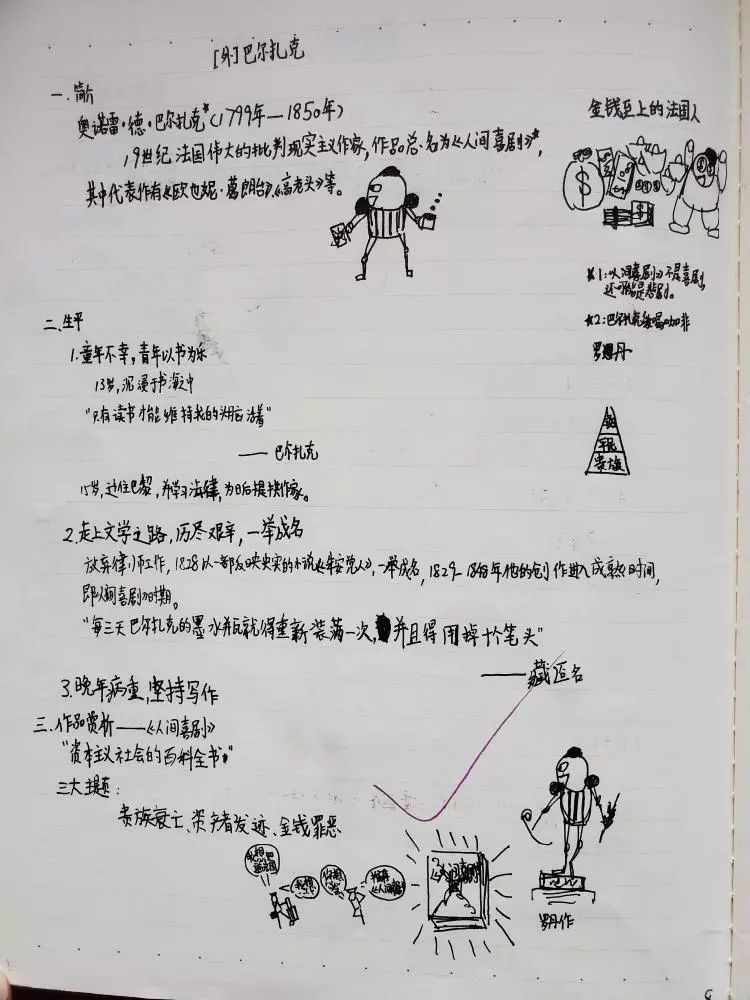 [外]巴尔扎克
一.简介
奥诺雷·德·巴尔扎克*(1799年—1850年)
19世纪法国伟大的批判现实主义作家,作品总名为《人间喜剧》*,
其中代表作有《欧也妮·葛朗台》《高老头》等。
金钱至上的法国人
$
$
*1:《人间喜剧》不是喜剧,
还可能是悲剧。
*2:巴尔扎克爱喝咖啡
罗丹
平民
贵族
二.生平
1.童年不幸,青年以书为乐
13岁,沉浸于书海之中
"只有读书才能维持我的头脑活着"
——巴尔扎克
15岁,迁往巴黎,并学习法律,为日后提供
2.走上文学之路,历尽艰辛,一举成名
放弃律师工作,1828以一部反映史实的小说《朱安党人》,一举成名,1829—1848年他的创作进入成熟时间,
即《人间喜剧》时期。
"每三天巴尔扎克的墨水并瓦就得重新装满一次,并且得用掉十个笔头"
——藏匿名
3.晚年病重,坚持写作
三.作品赏析——《人间喜剧》
"资本主义社会的百科全书"
三大主题:
贵族衰亡、资产者发迹、金钱罪恶
人间喜剧
罗丹作